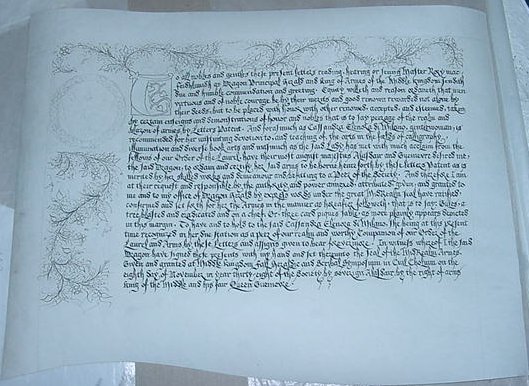 To all nobles and gentles these present letters reading, hearing or seeing Master Rory mac
Feidhlimidh, Dragon Principal Herald and King of Armes of the Middle Kingdom, sendeth
due and humble commendation and greeting. Equity willeth and reason ordaineth that men
virtuous and of noble courage be by their merits and good renown rewarded not alone by
their deeds but to be placed with honor with other renowned accepted, and esteemed, taken
by certain ensigns and demonstrations of honor and nobless that is to say pertage of the realm and
blazon of armes, by Letters Patents. And forasmuch as Cassandra Elenora di Milano, gentlewoman, is
recommended for her unstinting devotion to, and teaching of the arts in the fields of calligraphy,
illumination and diverse book arts and insomuch as the said Lady has met with much acclaim from the
fellows of our Order of the Laurel, have their most august majesties Alasdair and Guenevere desired me
the said Dragon to ordain and certify her said arms to be borne henceforth by these letters Patent as is
merited by her skilled works and demeanour and dwelling to a Peer of the Society. And therefore I am
at their request and responsible by the authority and power annexed attributed, given and granted to
me and to my office of Dragon Herald by express words under the great MidRealm seal have ratified
confirmed and set forth for her the Armes in the manner as hereafter followeth, that is to say: Gules, a
tree blasted and eradicated and on a chief Or, three card piques sable, as more plainly appears depicted
in this margin. To have and to hold to the said Cassandra Elenora di Milano, She being at this present
time recomized in her due station as a peer of our realm and worthy Companion of our Order of the
Laurel and Arms by these Letters and assigns given to bear forevermore. In witness whereof I the said
Dragon have signed these presents with my hand and set thereunto the seal of the MidRealm Armes.
Given and granted at Middle Kingdom Fall Heraldic and Scribal Symposium in Cuil Choluim on the
eighth day of November in year thirty-eight of the Society by sovereign Alasdair by the right of arms
king of the Middle and his fair Queen Guenevere.